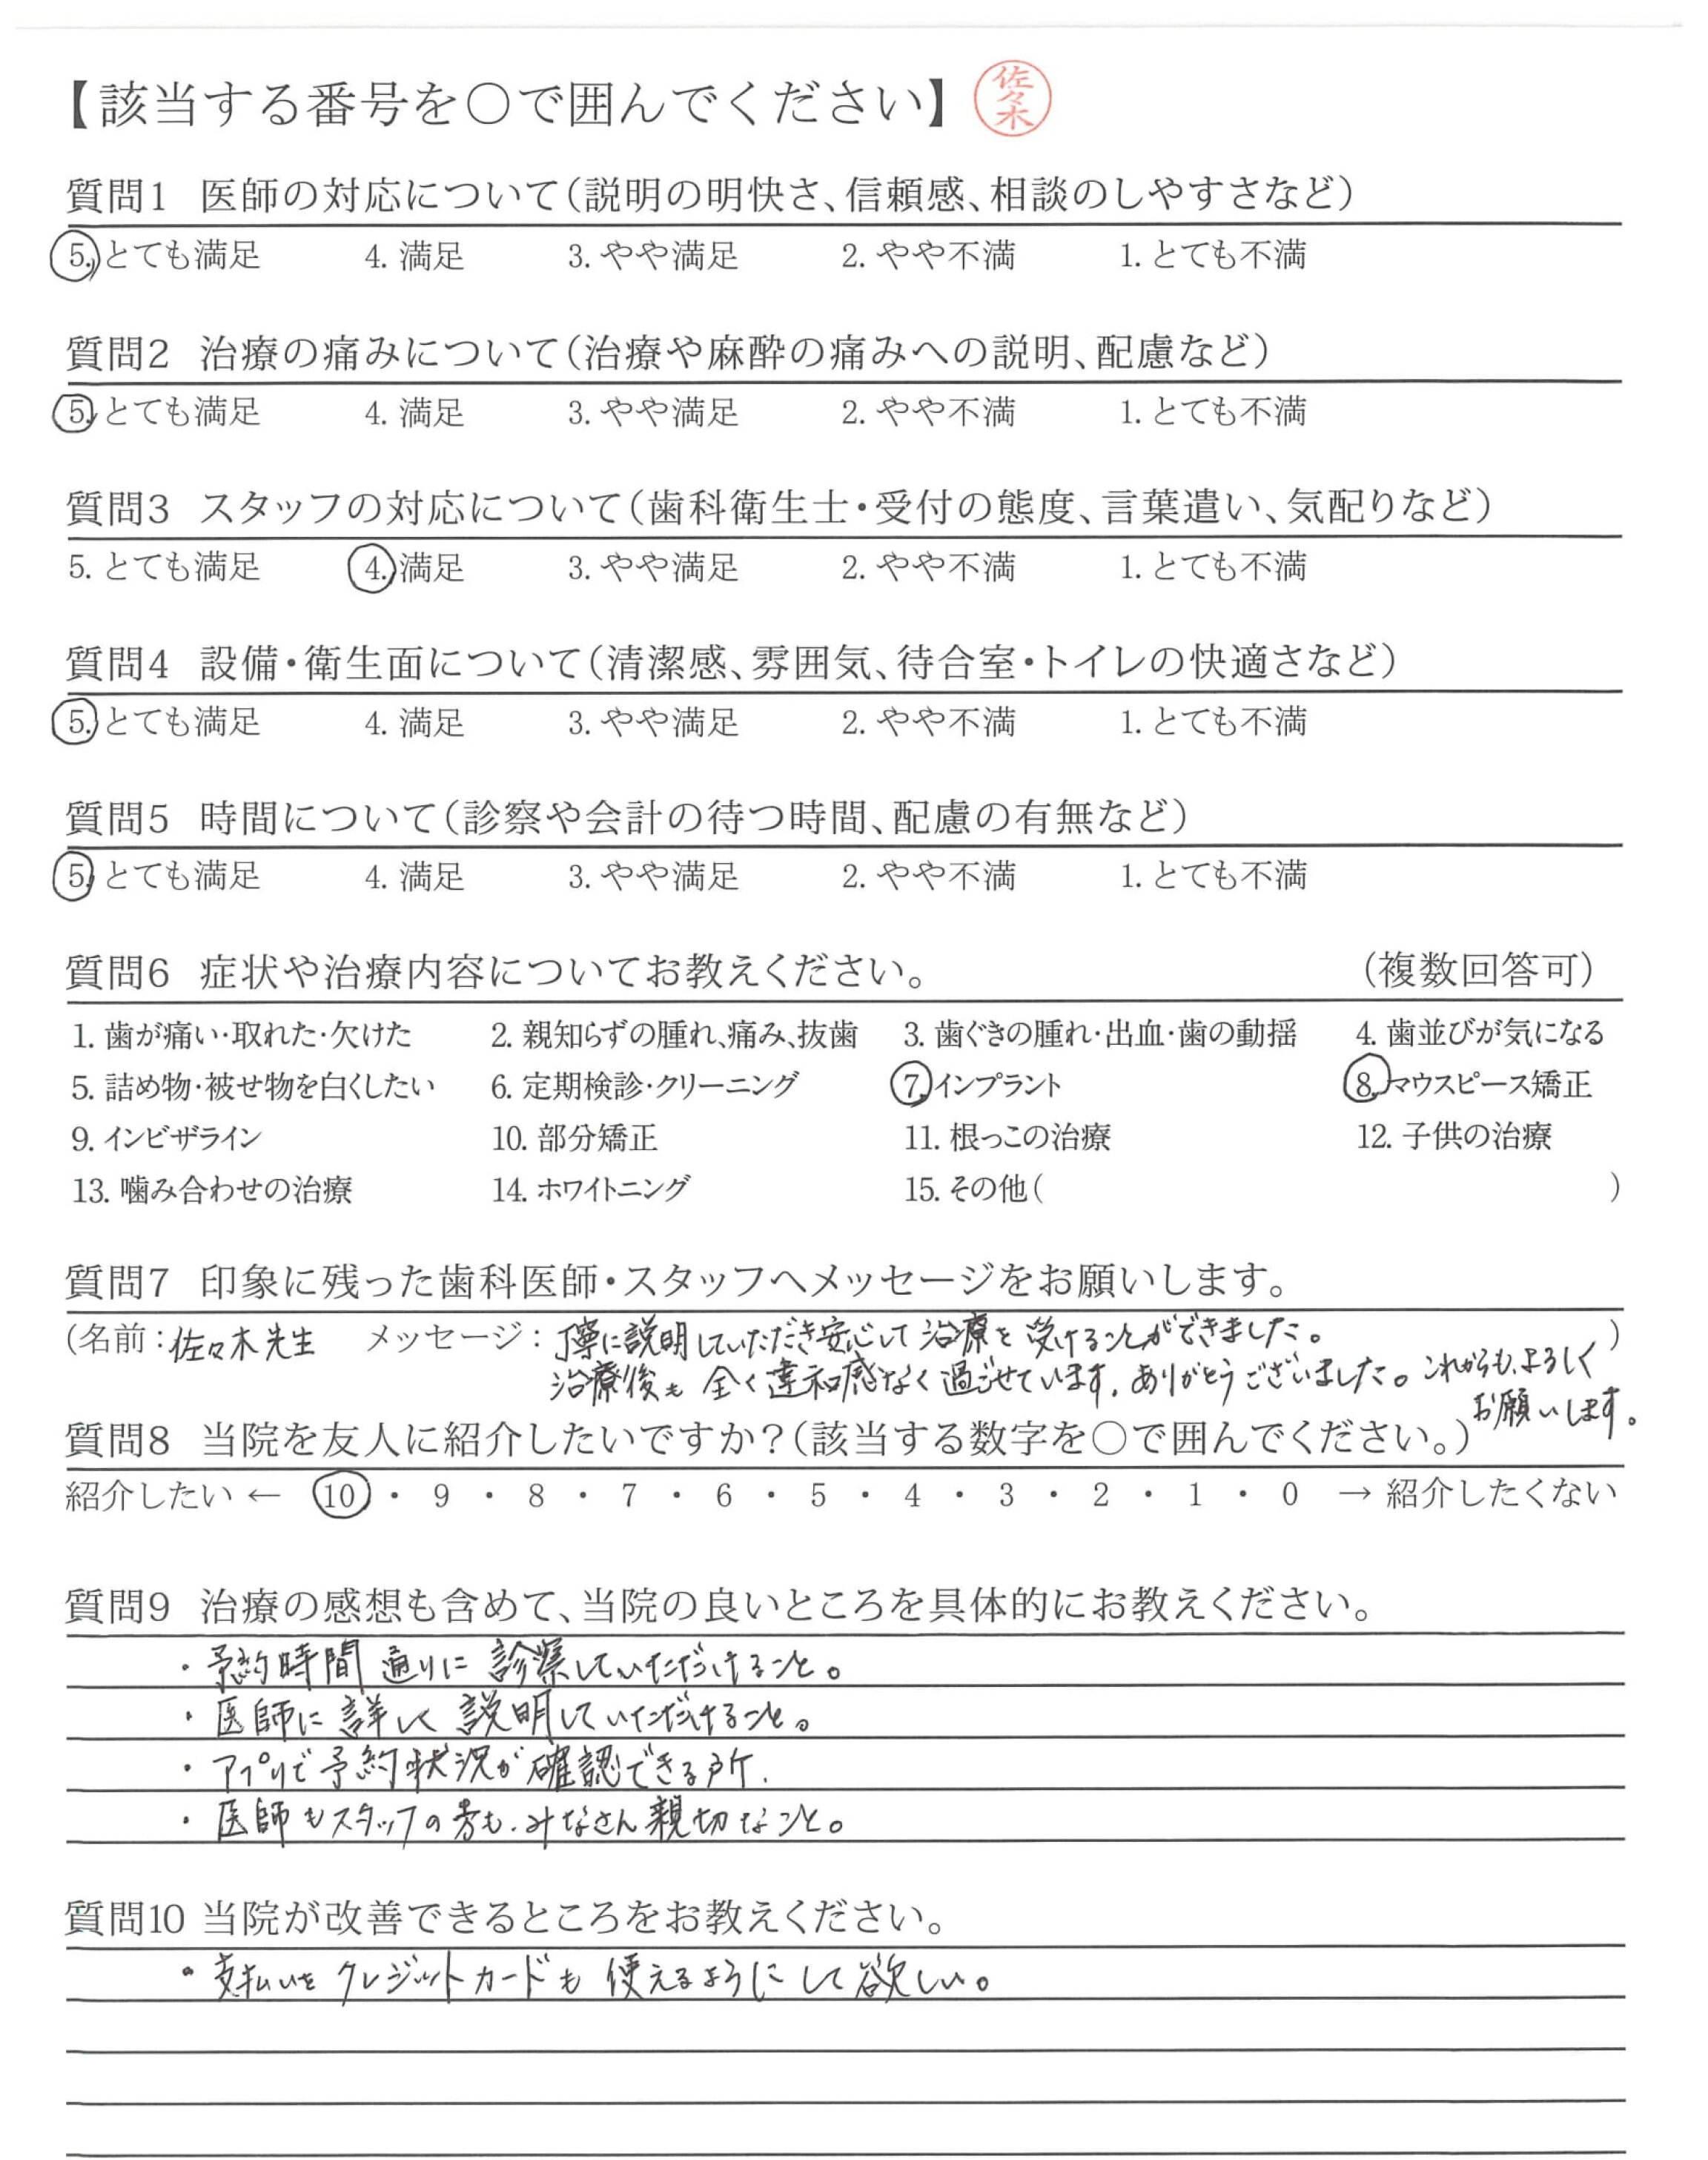 【該当する番号を○で囲んでください】 佐々木
質問1 医師の対応について（説明の明快さ、信頼感、相談のしやすさなど）
5. とても満足 4. 満足 3. やや満足 2. やや不満 1. とても不満
質問2 治療の痛みについて（治療や麻酔の痛みへの説明、配慮など）
5. とても満足 4. 満足 3. やや満足 2. やや不満 1. とても不満
質問3 スタッフの対応について（歯科衛生士・受付の態度、言葉遣い、気配りなど）
5. とても満足 4. 満足 3. やや満足 2. やや不満 1. とても不満
質問4 設備・衛生面について（清潔感、雰囲気、待合室・トイレの快適さなど）
5. とても満足 4. 満足 3. やや満足 2. やや不満 1. とても不満
質問5 時間について（診察や会計の待つ時間、配慮の有無など）
5. とても満足 4. 満足 3. やや満足 2. やや不満 1. とても不満
質問6 症状や治療内容についてお教えください。 （複数回答可）
1. 歯が痛い・取れた・欠けた 2. 親知らずの腫れ、痛み、抜歯 3. 歯ぐきの腫れ・出血・歯の動揺 4. 歯並びが気になる
5. 詰め物・被せ物を白くしたい 6. 定期検診・クリーニング 7. インプラント 8. マウスピース矯正
9. インビザライン 10. 部分矯正 11. 根っこの治療 12. 子供の治療
13. 噛み合わせの治療 14. ホワイトニング 15. その他（ ）
質問7 印象に残った歯科医師・スタッフへメッセージをお願いします。
（名前：佐々木先生 メッセージ：丁寧に説明していただき安心して治療を受けることができました。 ）
治療後も全く違和感なく過ごせています。ありがとうございました。これからもよろしく
お願いします。
質問8 当院を友人に紹介したいですか？（該当する数字を○で囲んでください。）
紹介したい ← 10 ・ 9 ・ 8 ・ 7 ・ 6 ・ 5 ・ 4 ・ 3 ・ 2 ・ 1 ・ 0 → 紹介したくない
質問9 治療の感想も含めて、当院の良いところを具体的にお教えください。
・予約時間通りに診察していただけること。
・医師に詳しく説明していただけること。
・アプリで予約状況が確認できる所.
・医師もスタッフの方も、みなさん親切なこと。
質問10 当院が改善できるところをお教えください。
・支払いをクレジットカードも使えるようにして欲しい。